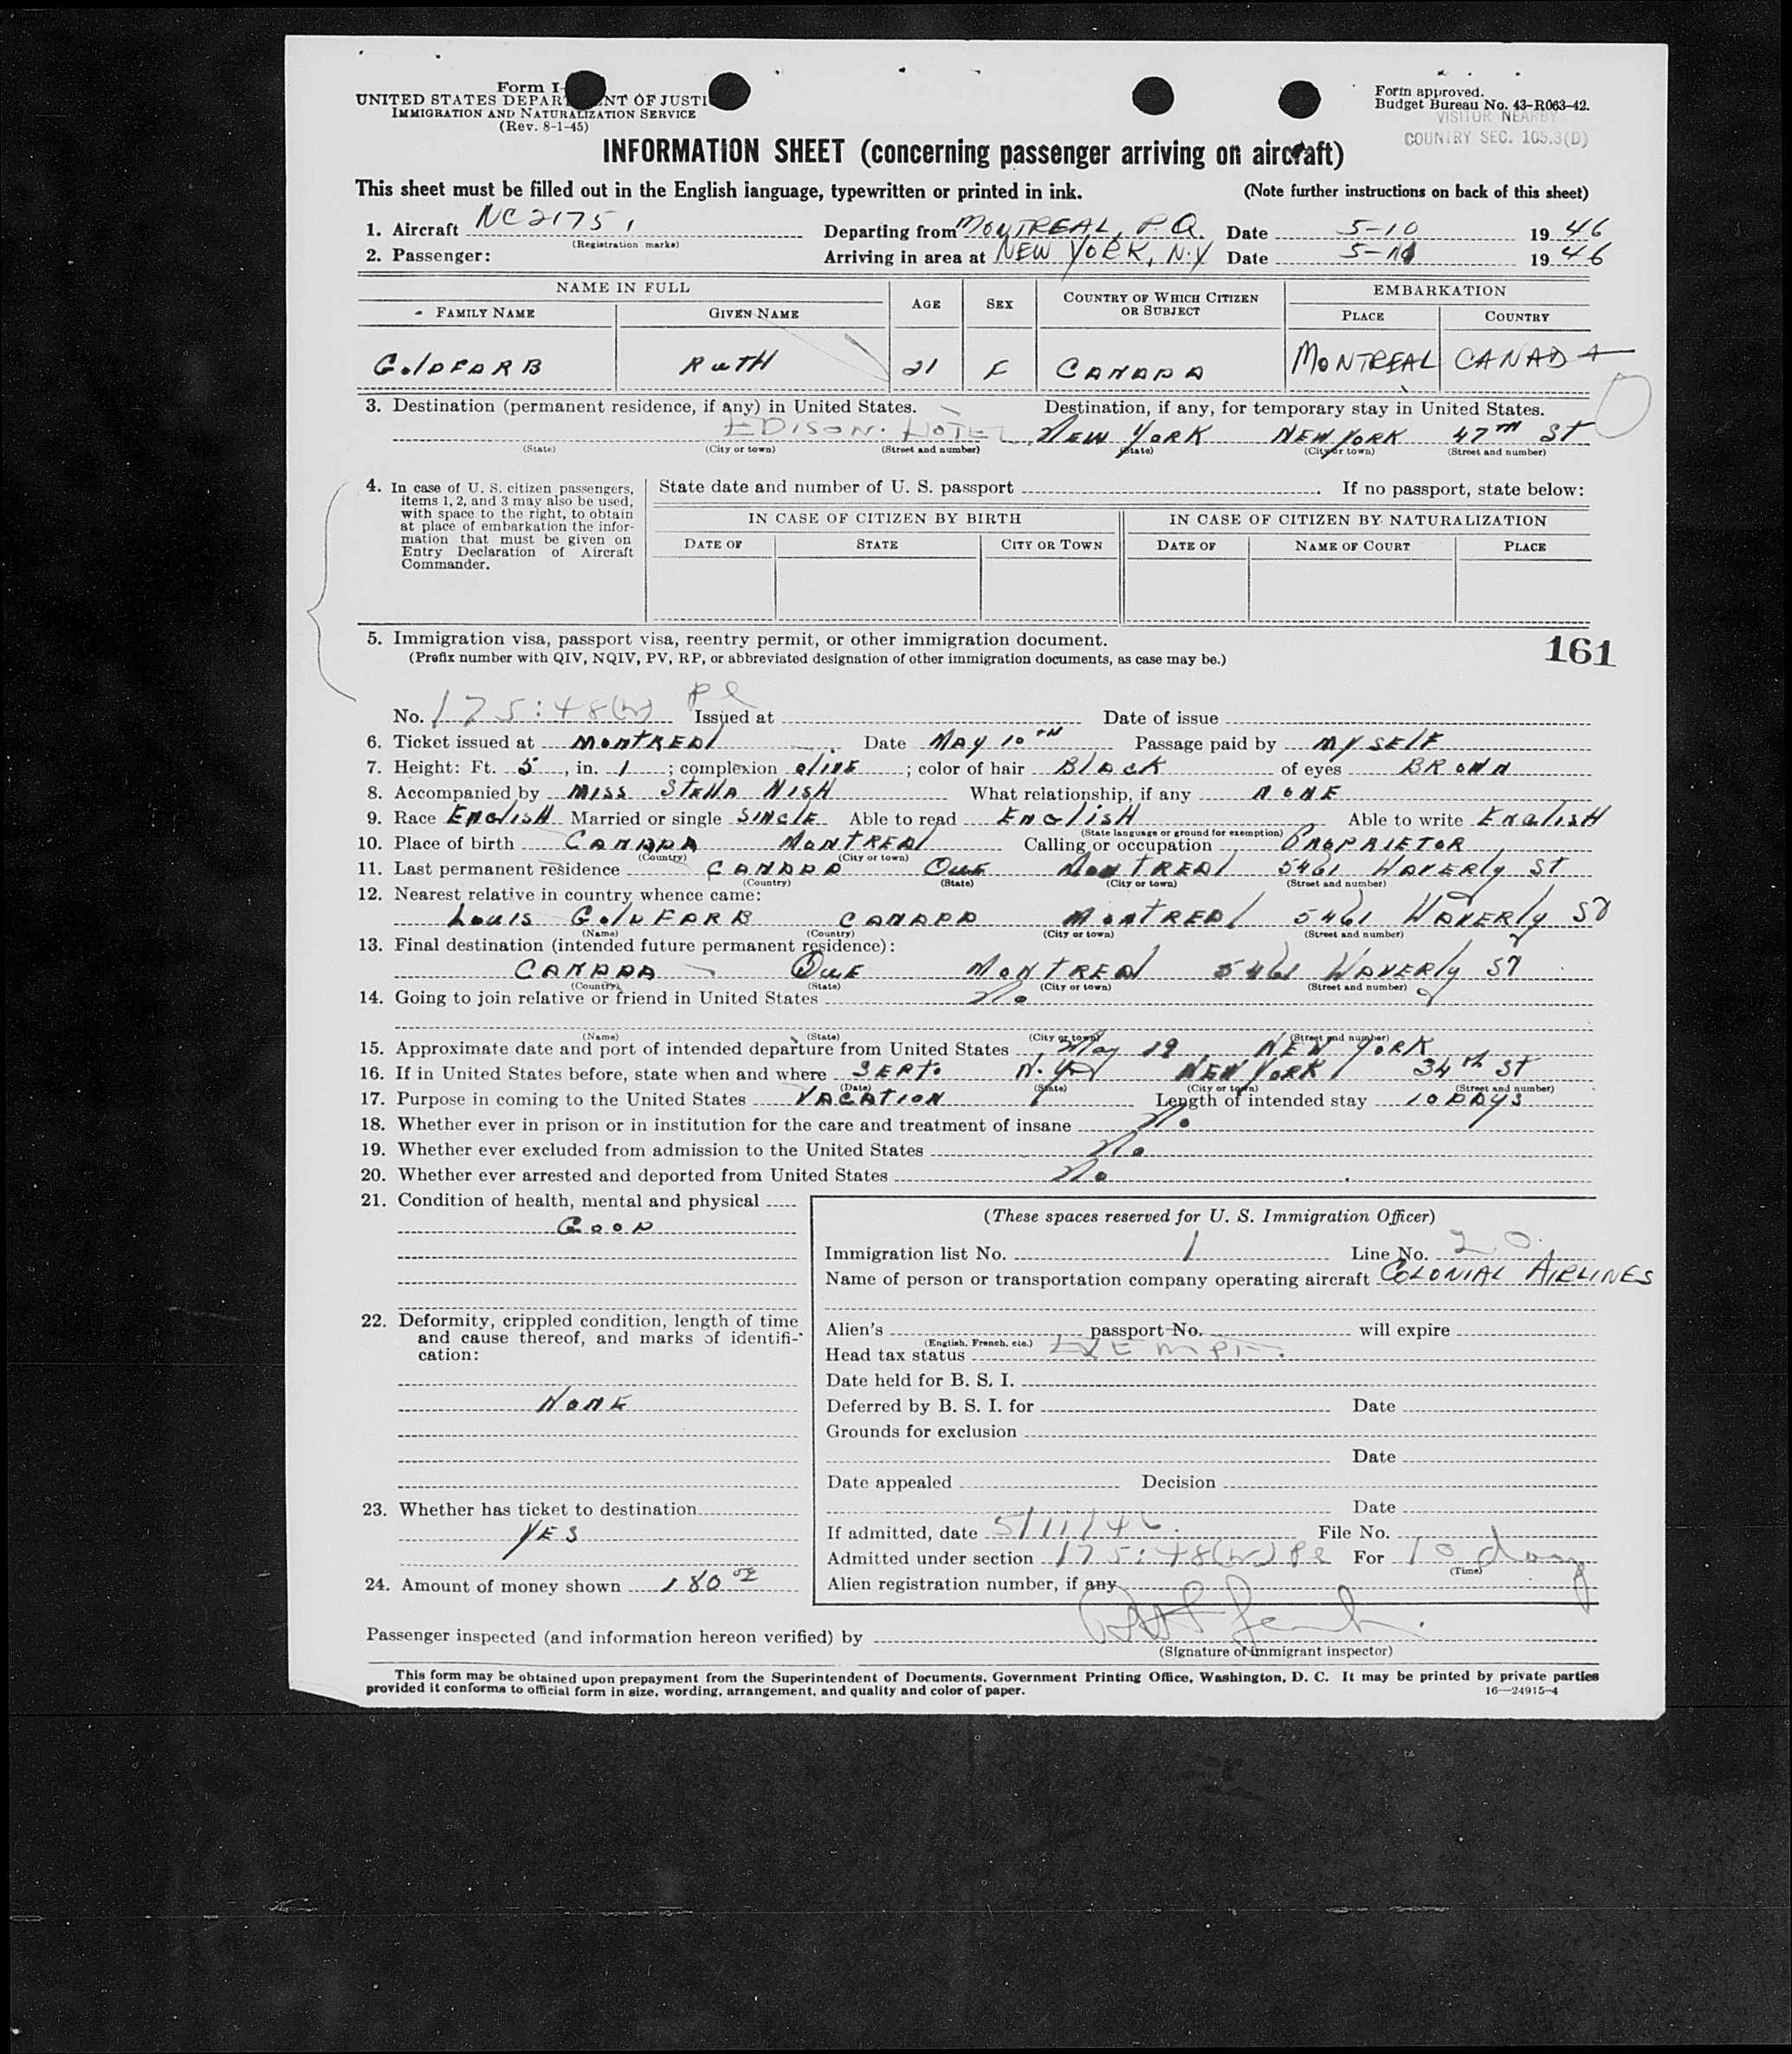 Form I-
UNITED STATES DEPAR NT OF JUSTI
IMMIGRATION AND NATURALIZATION SERVICE
(Rev. 8-1-45)
Form approved.
Budget Bureau No. 43-R063-42.
VISITOR NEARBY
COUNTRY SEC. 105.3(D)
INFORMATION SHEET (concerning passenger arriving on aircraft)
This sheet must be filled out in the English language, typewritten or printed in ink. (Note further instructions on back of this sheet)
1. Aircraft NC21751 Departing from MONTREAL, P.Q. Date 5-10 1946
(Registration marks)
2. Passenger: Arriving in area at NEW YORK, N.Y Date 5-11 1946
NAME IN FULL AGE SEX COUNTRY OF WHICH CITIZEN OR SUBJECT EMBARKATION
FAMILY NAME GIVEN NAME PLACE COUNTRY
GOLDFARB RUTH 21 F CANADA MONTREAL CANADA
3. Destination (permanent residence, if any) in United States. Destination, if any, for temporary stay in United States.
EDISON HOTEL NEW YORK NEW YORK 47TH ST
(State) (City or town) (Street and number) (State) (City or town) (Street and number)
4. In case of U. S. citizen passengers, items 1, 2, and 3 may also be used, with space to the right, to obtain at place of embarkation the information that must be given on Entry Declaration of Aircraft Commander.
State date and number of U. S. passport . If no passport, state below:
IN CASE OF CITIZEN BY BIRTH IN CASE OF CITIZEN BY NATURALIZATION
DATE OF STATE CITY OR TOWN DATE OF NAME OF COURT PLACE
5. Immigration visa, passport visa, reentry permit, or other immigration document. 161
(Prefix number with QIV, NQIV, PV, RP, or abbreviated designation of other immigration documents, as case may be.)
No. 175:48(w) Pl Issued at Date of issue
6. Ticket issued at MONTREAL Date MAY 10TH Passage paid by MYSELF
7. Height: Ft. 5, in. 1; complexion OLIVE; color of hair BLACK of eyes BROWN
8. Accompanied by MISS STELLA NISH What relationship, if any NONE
9. Race ENGLISH Married or single SINGLE Able to read ENGLISH Able to write ENGLISH
(State language or ground for exemption)
10. Place of birth CANADA MONTREAL Calling or occupation PROPRIETOR
(Country) (City or town)
11. Last permanent residence CANADA QUE MONTREAL 5461 WAVERLY ST
(Country) (State) (City or town) (Street and number)
12. Nearest relative in country whence came:
LOUIS GOLDFARB CANADA MONTREAL 5461 WAVERLY ST
(Name) (Country) (City or town) (Street and number)
13. Final destination (intended future permanent residence):
CANADA QUE MONTREAL 5461 WAVERLY ST
(Country) (State) (City or town) (Street and number)
14. Going to join relative or friend in United States No
(Name) (State) (City or town) (Street and number)
15. Approximate date and port of intended departure from United States May 19, NEW YORK
16. If in United States before, state when and where SEPT. N.Y. NEW YORK 34th ST
(Date) (State) (City or town) (Street and number)
17. Purpose in coming to the United States VACATION Length of intended stay 10 DAYS
18. Whether ever in prison or in institution for the care and treatment of insane No
19. Whether ever excluded from admission to the United States No
20. Whether ever arrested and deported from United States No
21. Condition of health, mental and physical
GOOD
22. Deformity, crippled condition, length of time and cause thereof, and marks of identification:
NONE
23. Whether has ticket to destination
YES
24. Amount of money shown 180
(These spaces reserved for U. S. Immigration Officer)
Immigration list No. 1 Line No. 20
Name of person or transportation company operating aircraft COLONIAL AIRLINES
Alien's passport No. will expire
(English, French, etc.)
Head tax status EXEMPT.
Date held for B. S. I.
Deferred by B. S. I. for Date
Grounds for exclusion
Date
Date appealed Decision
Date
If admitted, date 5/11/46. File No.
Admitted under section 175:48(w) Pl For 10 days
(Time)
Alien registration number, if any
Passenger inspected (and information hereon verified) by
(Signature of immigrant inspector)
This form may be obtained upon prepayment from the Superintendent of Documents, Government Printing Office, Washington, D. C. It may be printed by private parties
provided it conforms to official form in size, wording, arrangement, and quality and color of paper. 16—24915-4